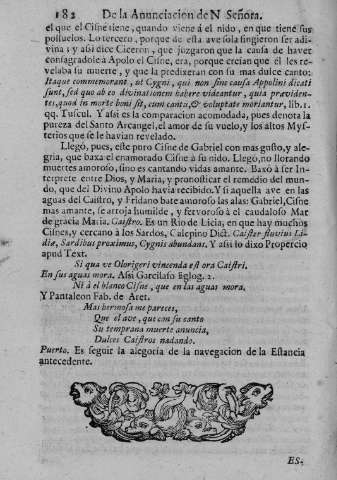 182 De la Anunciacion de N Señora.
el que el Cisne tiene, quando viene à el nido, en que tiene sus
polluelos. Lo tercero, porque de esta ave sola fingieron ser adi-
vina; y asi dice Ciceron, que juzgaron que la causa de haver
consagradole à Apolo el Cisne, era, porque creìan que èl les re-
velaba su muerte, y que la predixeran con su mas dulce canto:
Itaque commemorant, ut Cygni, qui non sine causa Appolini dicati
sunt, sed quo ab eo divinationem habere videantur, quia prævidien-
tes, quod in morte boni sit, cum cantu, & voluptate moriantur, lib. 1.
qq. Tuscul. Y asi es la comparacion acomodada, pues denota la
pureza del Santo Arcangel, el amor de su vuelo, y los altos Mys-
terios que se le havian revelado.
Llegò, pues, este puro Cisne de Gabriel con mas gusto, y ale-
gria, que baxa el enamorado Cisne à su nido. Llegò, no llorando
muertes amoroso, sino es cantando vidas amante. Baxò à ser In-
terprete entre Dios, y Maria, y pronosticar el remedio del mun-
do, que del Divino Apolo havia recibido. Y si aquella ave en las
aguas del Caistro, y Eridano bate amoroso las alas: Gabriel, Cisne
mas amante, se arroja humilde, y fervoroso à el caudaloso Mar
de gracia Maria. Caistro. Es un Rio de Licia, en que hay muchos
Cisnes, y cercano à los Sardos, Calepino Dict. Caister fluvius Li-
diæ, Sardibus proximus, Cygnis abundans. Y asi lo dixo Propercio
apud Text.
Si qua ve Olorigeri vincenda est ora Caistri.
En sus aguas mora. Asi Garcilaso Eglog. 2.
Ni à el blanco Cisne, que en las aguas mora.
Y Pantaleon Fab. de Aret.
Mas hermosa me pareces,
Que el ave, que con su canto
Su temprana muerte anuncia,
Dulces Caistros nadando.
Puerto. Es seguir la alegoria de la navegacion de la Estancia
antecedente.
ES-